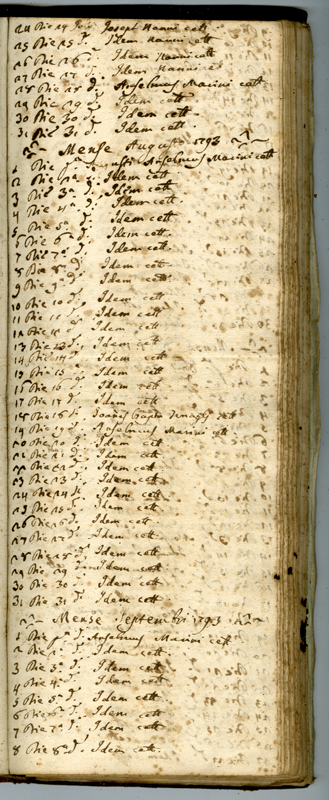 24 Die 24 Julii Joseph Nanni cett
25 Die 25 d. Idem Nanni cett
26 Die 26 d. Idem Nanni cett
27 Die 27 d. Idem Nanni cett
28 Die 28 d. Anselmus Marini cett
29 Die 29 d. Idem cett
30 Die 30 d. Idem cett
31 Die 31 d. Idem cett
Mense Augusti 1793
1 Die Augusti Anselmus Marini cett
2 Die 2a d. Idem cett
3 Die 3a d. Idem cett
4 Die 4a d. Idem cett
5 Die 5a d. Idem cett
6 Die 6a d. Idem cett
7 Die 7a d. Idem cett
8 Die 8a d. Idem cett
9 Die 9a d. Idem cett
10 Die 10 d. Idem cett
11 Die 11 d. Idem cett
12 Die 12 d. Idem cett
13 Die 13 d. Idem cett
14 Die 14 d. Idem cett
15 Die 15 d. Idem cett
16 Die 16 d. Idem cett
17 Die 17 d. Idem cett
18 Die 18 d. cett
19 Die 19 d. Anselmus Marini cett
20 Die 20 d. Idem cett
21 Die 21 d. Idem cett
22 Die 22 d. Idem cett
23 Die 23 d. Idem cett
24 Die 24 d. Idem cett
25 Die 25 d. Idem cett
26 Die 26 d. Idem cett
27 Die 27 d. Idem cett
28 Die 28 d. Idem cett
29 Die 29 Idem cett
30 Die 30 Idem cett
31 Die 31 d. Idem cett
Mense Septembris 1793
1 Die d. Anselmus Marini cett
2 Die d. Idem cett
3 Die 3a d. Idem cett
4 Die 4a d. Idem cett
5 Die 5a d. Idem cett
6 Die 6a d. Idem cett
7 Die 7a d. Idem cett
8 Die 8a d. Idem cett